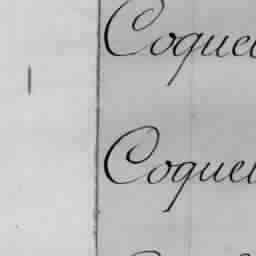 Coquel
Coquel